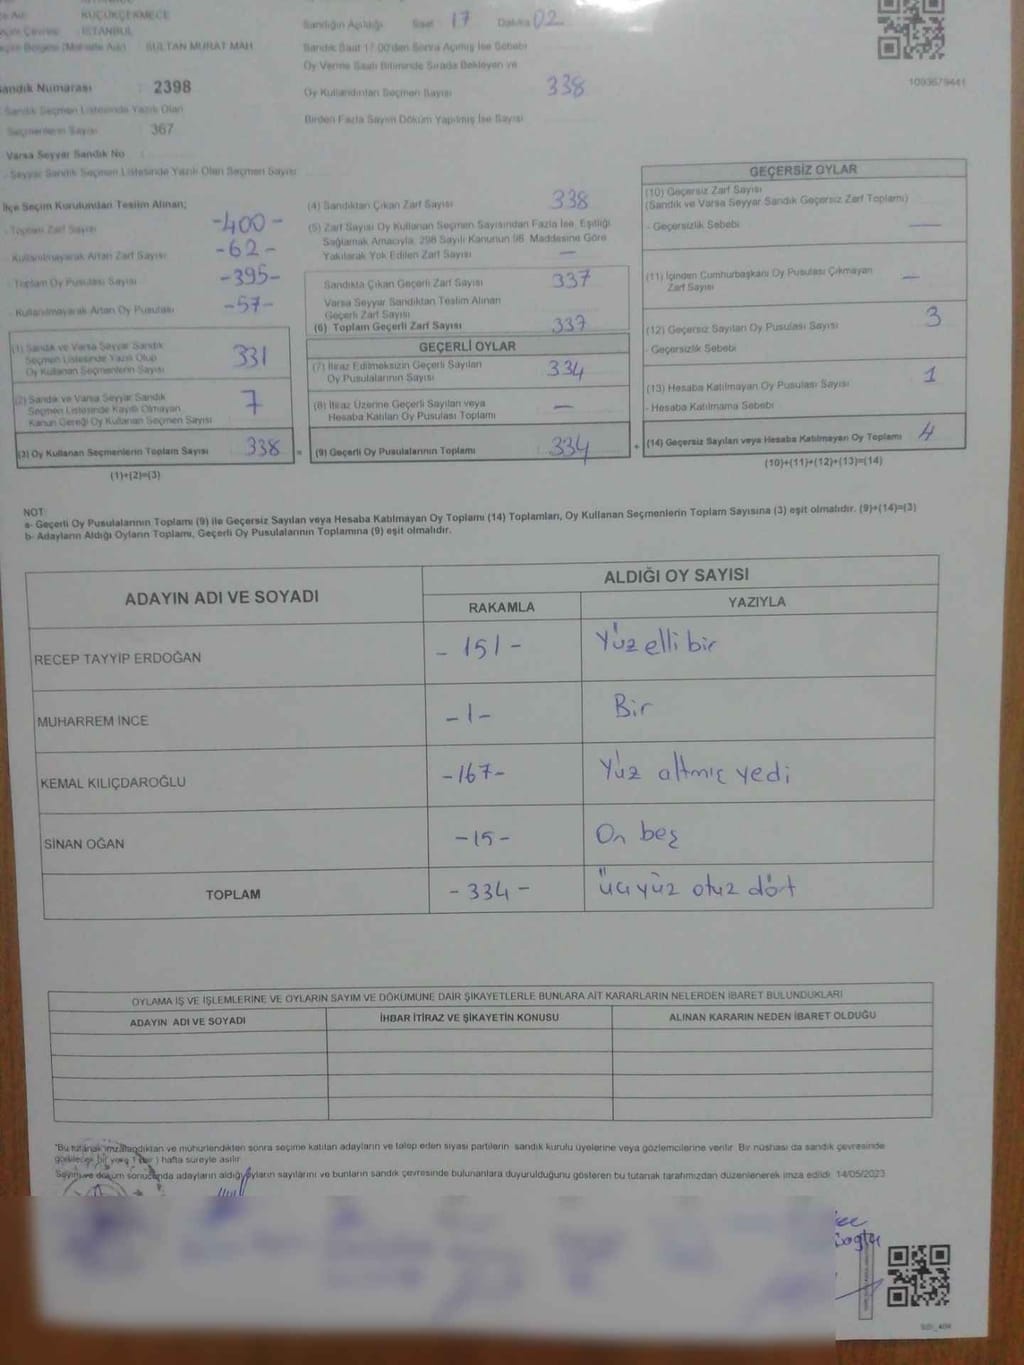 KÜÇÜKÇEKMECE
İSTANBUL
SULTAN MURAT MAH.
Sandık Numarası : 2398
Sandık Seçmen Listesinde Yazılı Olan
Seçmenlerin Sayısı : 367
Varsa Seyyar Sandık No
- Seyyar Sandık Seçmen Listesinde Yazılı Olan Seçmen Sayısı
Sandığın Açıldığı Saat 17 Dakika 02
Sandık Saat 17:00'den Sonra Açılmış İse Sebebi
Oy Verme Saati Bitiminde Sırada Bekleyen ve
Oy Kullandırılan Seçmen Sayısı 338
Birden Fazla Sayım Döküm Yapılmış İse Sayısı
1093679441
İlçe Seçim Kurulundan Teslim Alınan;
- Toplam Zarf Sayısı -400-
- Kullanılmayarak Artan Zarf Sayısı -62-
- Toplam Oy Pusulası Sayısı -395-
- Kullanılmayarak Artan Oy Pusulası -57-
(1) Sandık ve Varsa Seyyar Sandık
Seçmen Listesinde Yazılı Olup
Oy Kullanan Seçmenlerin Sayısı 331
(2) Sandık ve Varsa Seyyar Sandık
Seçmen Listesinde Kayıtlı Olmayan
Kanun Gereği Oy Kullanan Seçmen Sayısı 7
(3) Oy Kullanan Seçmenlerin Toplam Sayısı 338 =
(1)+(2)=(3)
(4) Sandıktan Çıkan Zarf Sayısı 338
(5) Zarf Sayısı Oy Kullanan Seçmen Sayısından Fazla İse, Eşitliği
Sağlamak Amacıyla, 298 Sayılı Kanunun 98. Maddesine Göre
Yakılarak Yok Edilen Zarf Sayısı —
Sandıkta Çıkan Geçerli Zarf Sayısı 337
Varsa Seyyar Sandıktan Teslim Alınan
Geçerli Zarf Sayısı
(6) Toplam Geçerli Zarf Sayısı 337
GEÇERLİ OYLAR
(7) İtiraz Edilmeksizin Geçerli Sayılan
Oy Pusulalarının Sayısı 334
(8) İtiraz Üzerine Geçerli Sayılan veya
Hesaba Katılan Oy Pusulası Toplamı —
(9) Geçerli Oy Pusulalarının Toplamı 334 +
GEÇERSİZ OYLAR
(10) Geçersiz Zarf Sayısı
(Sandık ve Varsa Seyyar Sandık Geçersiz Zarf Toplamı)
- Geçersizlik Sebebi —
(11) İçinden Cumhurbaşkanı Oy Pusulası Çıkmayan
Zarf Sayısı —
(12) Geçersiz Sayılan Oy Pusulası Sayısı 3
- Geçersizlik Sebebi
(13) Hesaba Katılmayan Oy Pusulası Sayısı 1
- Hesaba Katılmama Sebebi
(14) Geçersiz Sayılan veya Hesaba Katılmayan Oy Toplamı 4
(10)+(11)+(12)+(13)=(14)
NOT:
a- Geçerli Oy Pusulalarının Toplamı (9) ile Geçersiz Sayılan veya Hesaba Katılmayan Oy Toplamı (14) Toplamları, Oy Kullanan Seçmenlerin Toplam Sayısına (3) eşit olmalıdır. (9)+(14)=(3)
b- Adayların Aldığı Oyların Toplamı, Geçerli Oy Pusulalarının Toplamına (9) eşit olmalıdır.
ADAYIN ADI VE SOYADI
ALDIĞI OY SAYISI
RAKAMLA YAZIYLA
RECEP TAYYİP ERDOĞAN - 151 - Yüz elli bir
MUHARREM İNCE -1- Bir
KEMAL KILIÇDAROĞLU -167- Yüz altmış yedi
SİNAN OĞAN -15- On beş
TOPLAM - 334 - üçyüz otuz dört
OYLAMA İŞ VE İŞLEMLERİNE VE OYLARIN SAYIM VE DÖKÜMÜNE DAİR ŞİKAYETLERLE BUNLARA AİT KARARLARIN NELERDEN İBARET BULUNDUKLARI
ADAYIN ADI VE SOYADI İHBAR İTİRAZ VE ŞİKAYETİN KONUSU ALINAN KARARIN NEDEN İBARET OLDUĞU
*Bu tutanak imzalandıktan ve mühürlendikten sonra seçime katılan adayların ve talep eden siyasi partilerin sandık kurulu üyelerine veya gözlemcilerine verilir. Bir nüshası da sandık çevresinde
görülecek bir yere 1 (bir) hafta süreyle asılır.
Sayım ve döküm sonucunda adayların aldığı oyların sayılarını ve bunların sandık çevresinde bulunanlara duyurulduğunu gösteren bu tutanak tarafımızdan düzenlenerek imza edildi. 14/05/2023